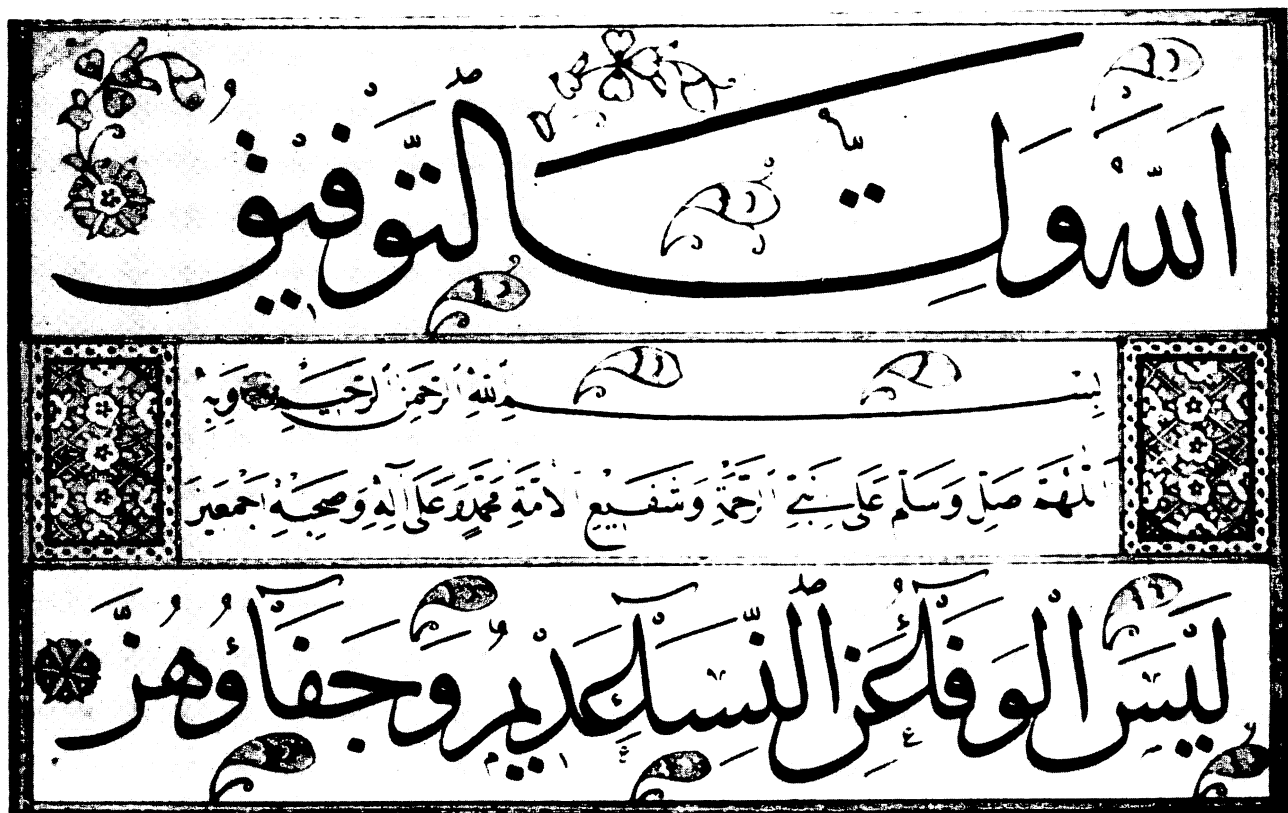 اَللّٰهُ وَلِيُّ التَّوْفِيقِ
بِسْمِ اللهِ الرَّحْمٰنِ الرَّحِيمِ وَبِهِ
اَللّٰهُمَّ صَلِّ وَسَلِّمْ عَلَى نَبِيِّ الرَّحْمَةِ وَشَفِيعِ الْأُمَّةِ مُحَمَّدٍ وَعَلَى آلِهِ وَصَحْبِهِ أَجْمَعِينَ
لَيْسَ الْوَفَاءُ عَنِ النِّسَاءِ عَدِيمُ وَجَفَاؤُهُنَّ